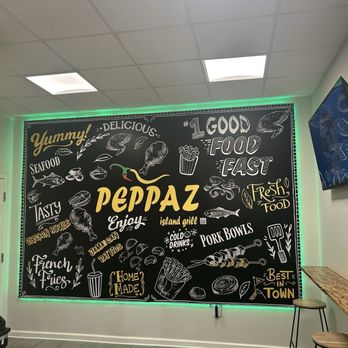 Yummy!
DELICIOUS
#1 GOOD
FOOD
FAST
SEAFOOD
PEPPAZ
island grill
Enjoy
Fresh
FOOD
TASTY
COLD
DRINKS
PORK BOWLS
JAMAICAN
PATTIES
French
Fries
HOME
MADE
BEST
IN
TOWN